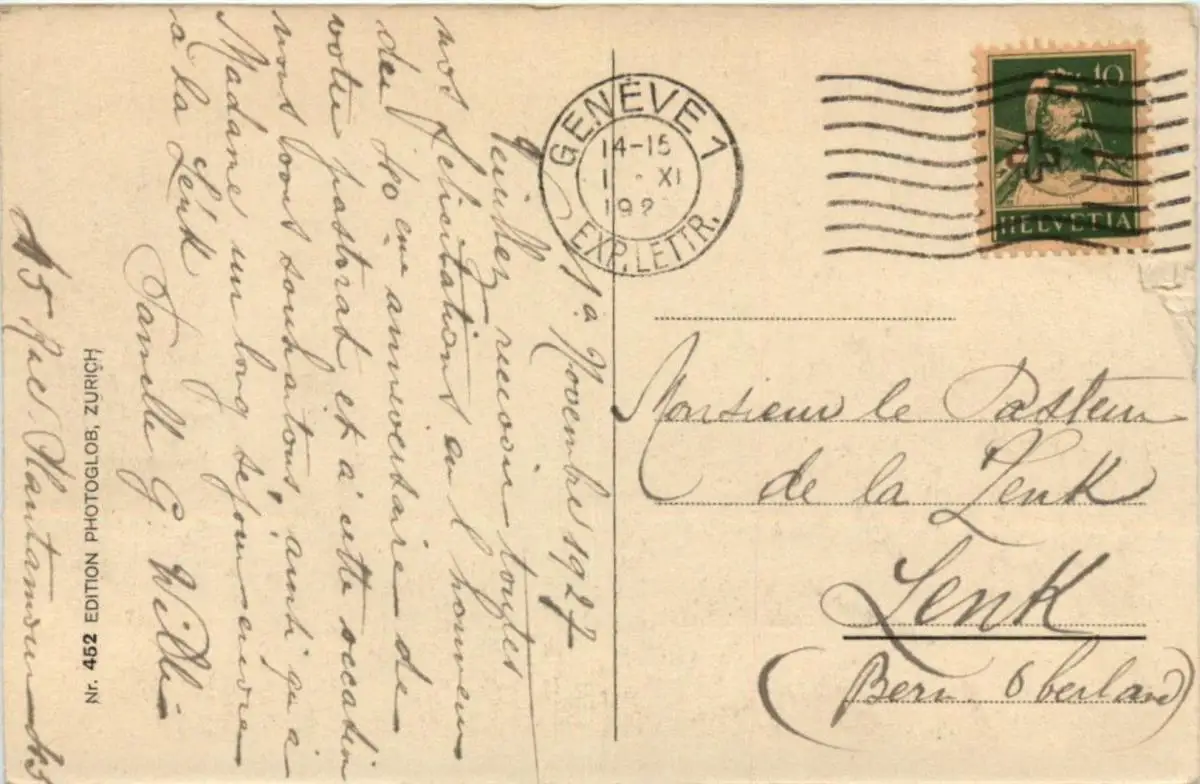 1a Novembre 1927
Veuillez recevoir toutes
nos felicitations en l'honneur
du 40 eme anniversaire de
votre pastorat et à cette occasion
nous vous souhaitons ainsi qu'à
Madame un long séjour encore
à la Lenk
Famille G. Willi
15 Rue Plantamour 15
Nr. 452 EDITION PHOTOGLOB, ZÜRICH
GENÈVE 1
14-15
1 · XI
192
EXP. LETTR.
10
HELVETIA
Monsieur le Pasteur
de la Lenk
Lenk
(Bern. Oberland)